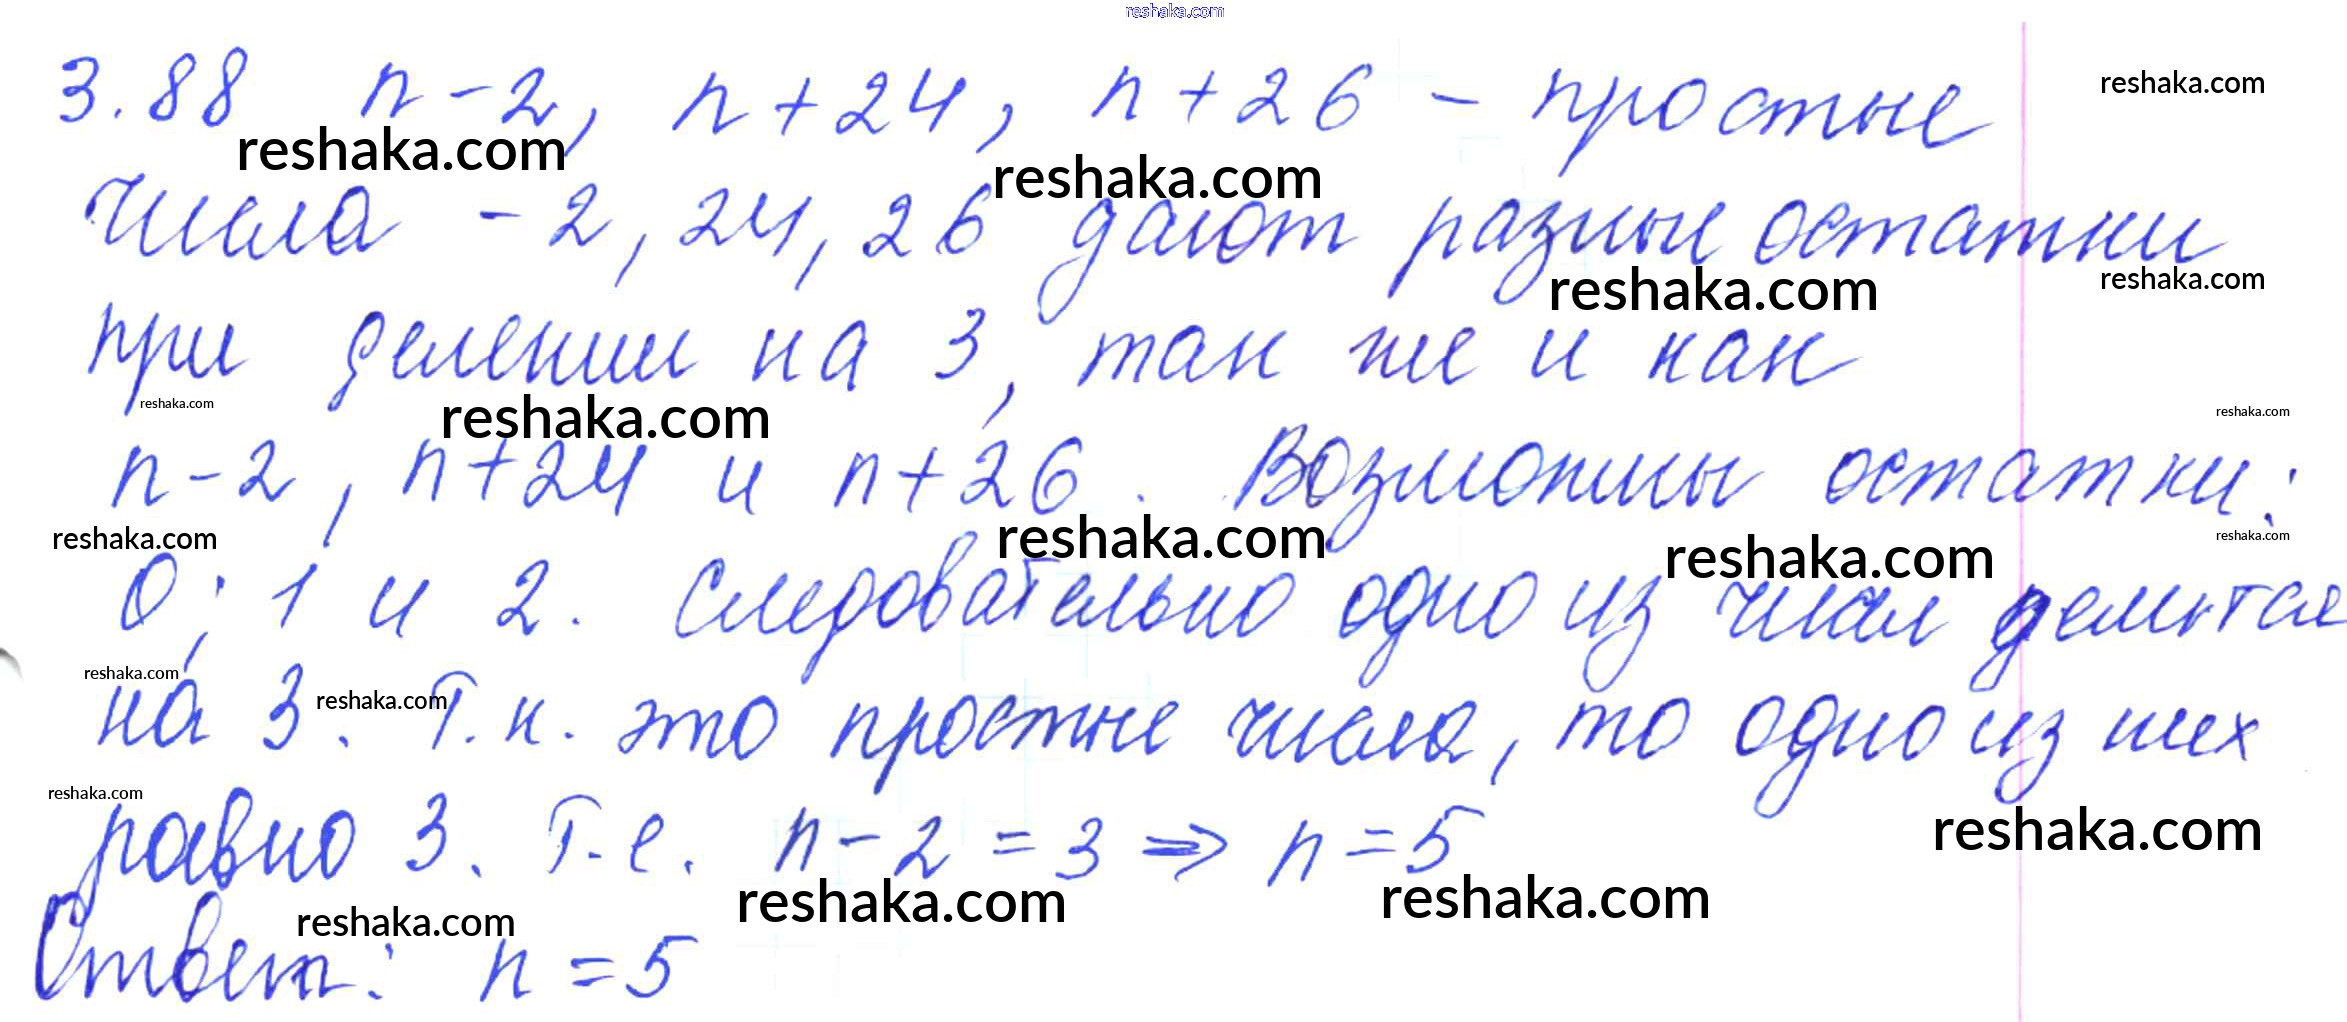 reshaka.com
3.88 n-2, n+24, n+26 - простые
reshaka.com
reshaka.com
reshaka.com
числа -2, 24, 26 дают разные остатки
reshaka.com
reshaka.com
при делении на 3, так же и как
reshaka.com
reshaka.com
reshaka.com
n-2, n+24 и n+26. Возможны остатки:
reshaka.com
reshaka.com
reshaka.com
reshaka.com
0; 1 и 2. Следовательно одно из чисел делится
reshaka.com
reshaka.com
на 3. Т.к. это простые числа, то одно из них
reshaka.com
reshaka.com
равно 3. Т.е. n-2=3 ⇒ n=5
reshaka.com
reshaka.com
reshaka.com
Ответ: n=5